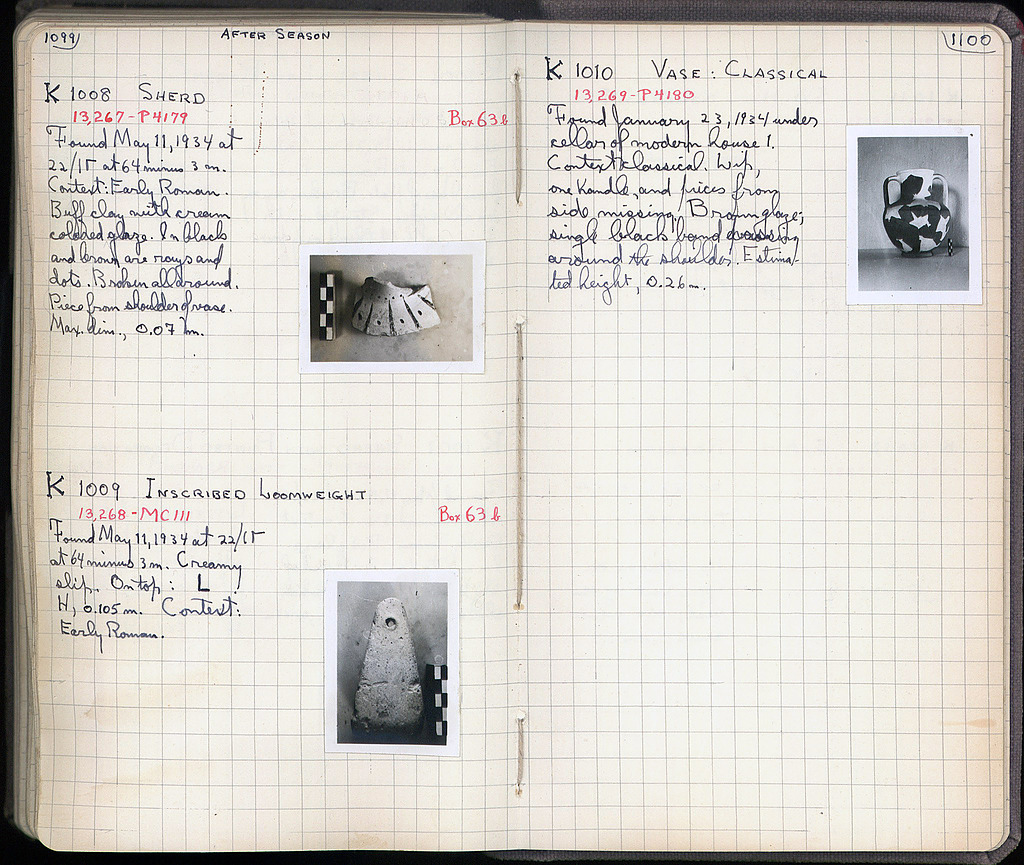 1099
AFTER SEASON
K 1008 SHERD
13,267-P4179
Box 63 b
Found May 11, 1934 at
22/ΙΓ at 64 minus 3 m.
Context: Early Roman.
Buff clay with cream
colored glaze. In black
and brown are rays and
dots. Broken all around.
Piece from shoulder of vase.
Max. dim., 0.07 m.
K 1009 INSCRIBED LOOMWEIGHT
13,268-MC111
Box 63 b
Found May 11, 1934 at 22/ΙΓ
at 64 minus 3 m. Creamy
slip. On top: L
H, 0.105 m. Context:
Early Roman.
1100
K 1010 VASE: CLASSICAL
13,269-P4180
Found January 23, 1934 under
cellar of modern house 1.
Context classical. Lip,
one handle, and pieces from
side missing. Brown glaze;
single black band
around the shoulder. Estima-
ted height, 0.26 m.